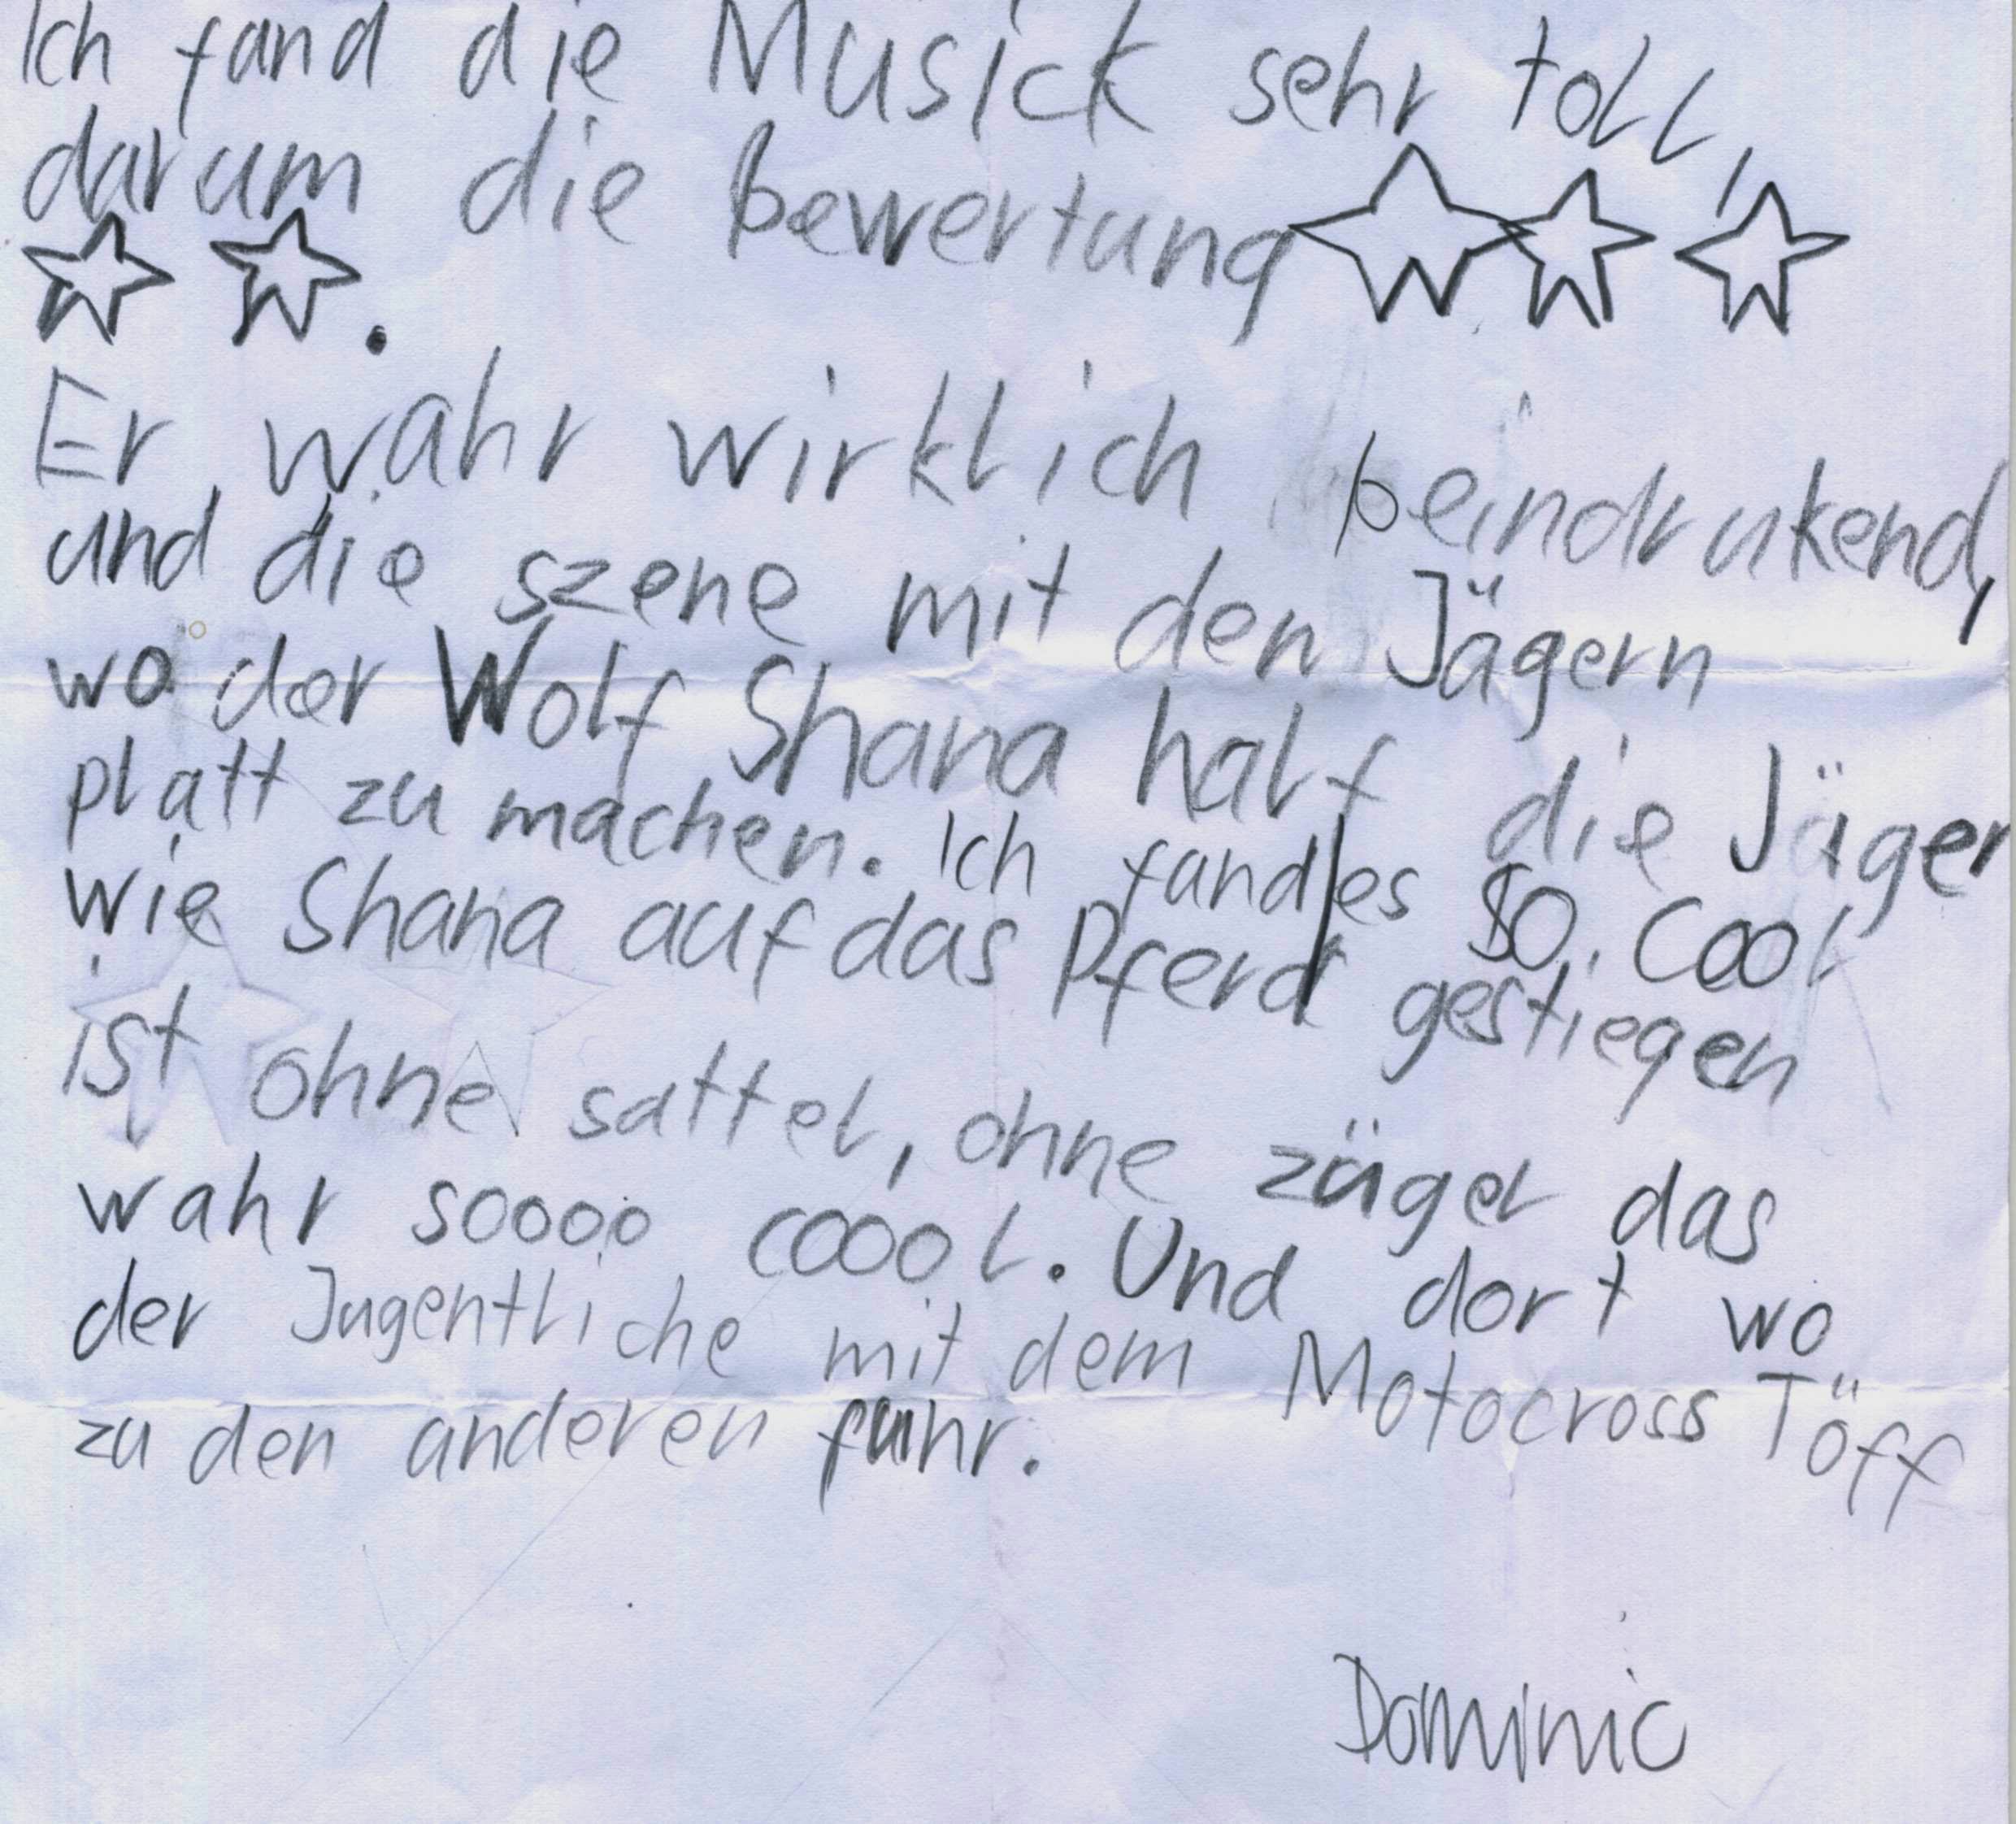 Ich fand die Musick sehr toll,
darum die Bewertung ☆☆☆
☆☆.
Er wahr wirklich beindrukend,
und die szene mit den Jägern
wo der Wolf Shana half die Jäger
platt zu machen. Ich fand es so cool
wie Shana auf das Pferd gestiegen
ist ohne sattel, ohne zügel das
wahr soooo coool. Und dort wo
der Jugentliche mit dem Motocross Töff
zu den anderen fuhr.
Dominic